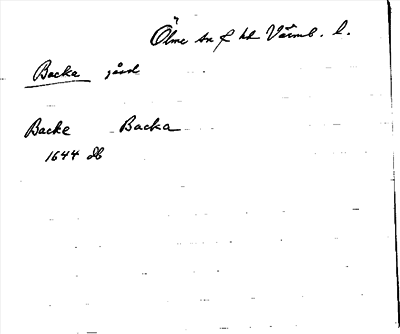 Ölme sn f hd Värml. l.
Backa gård
Backe Backa
1644 db